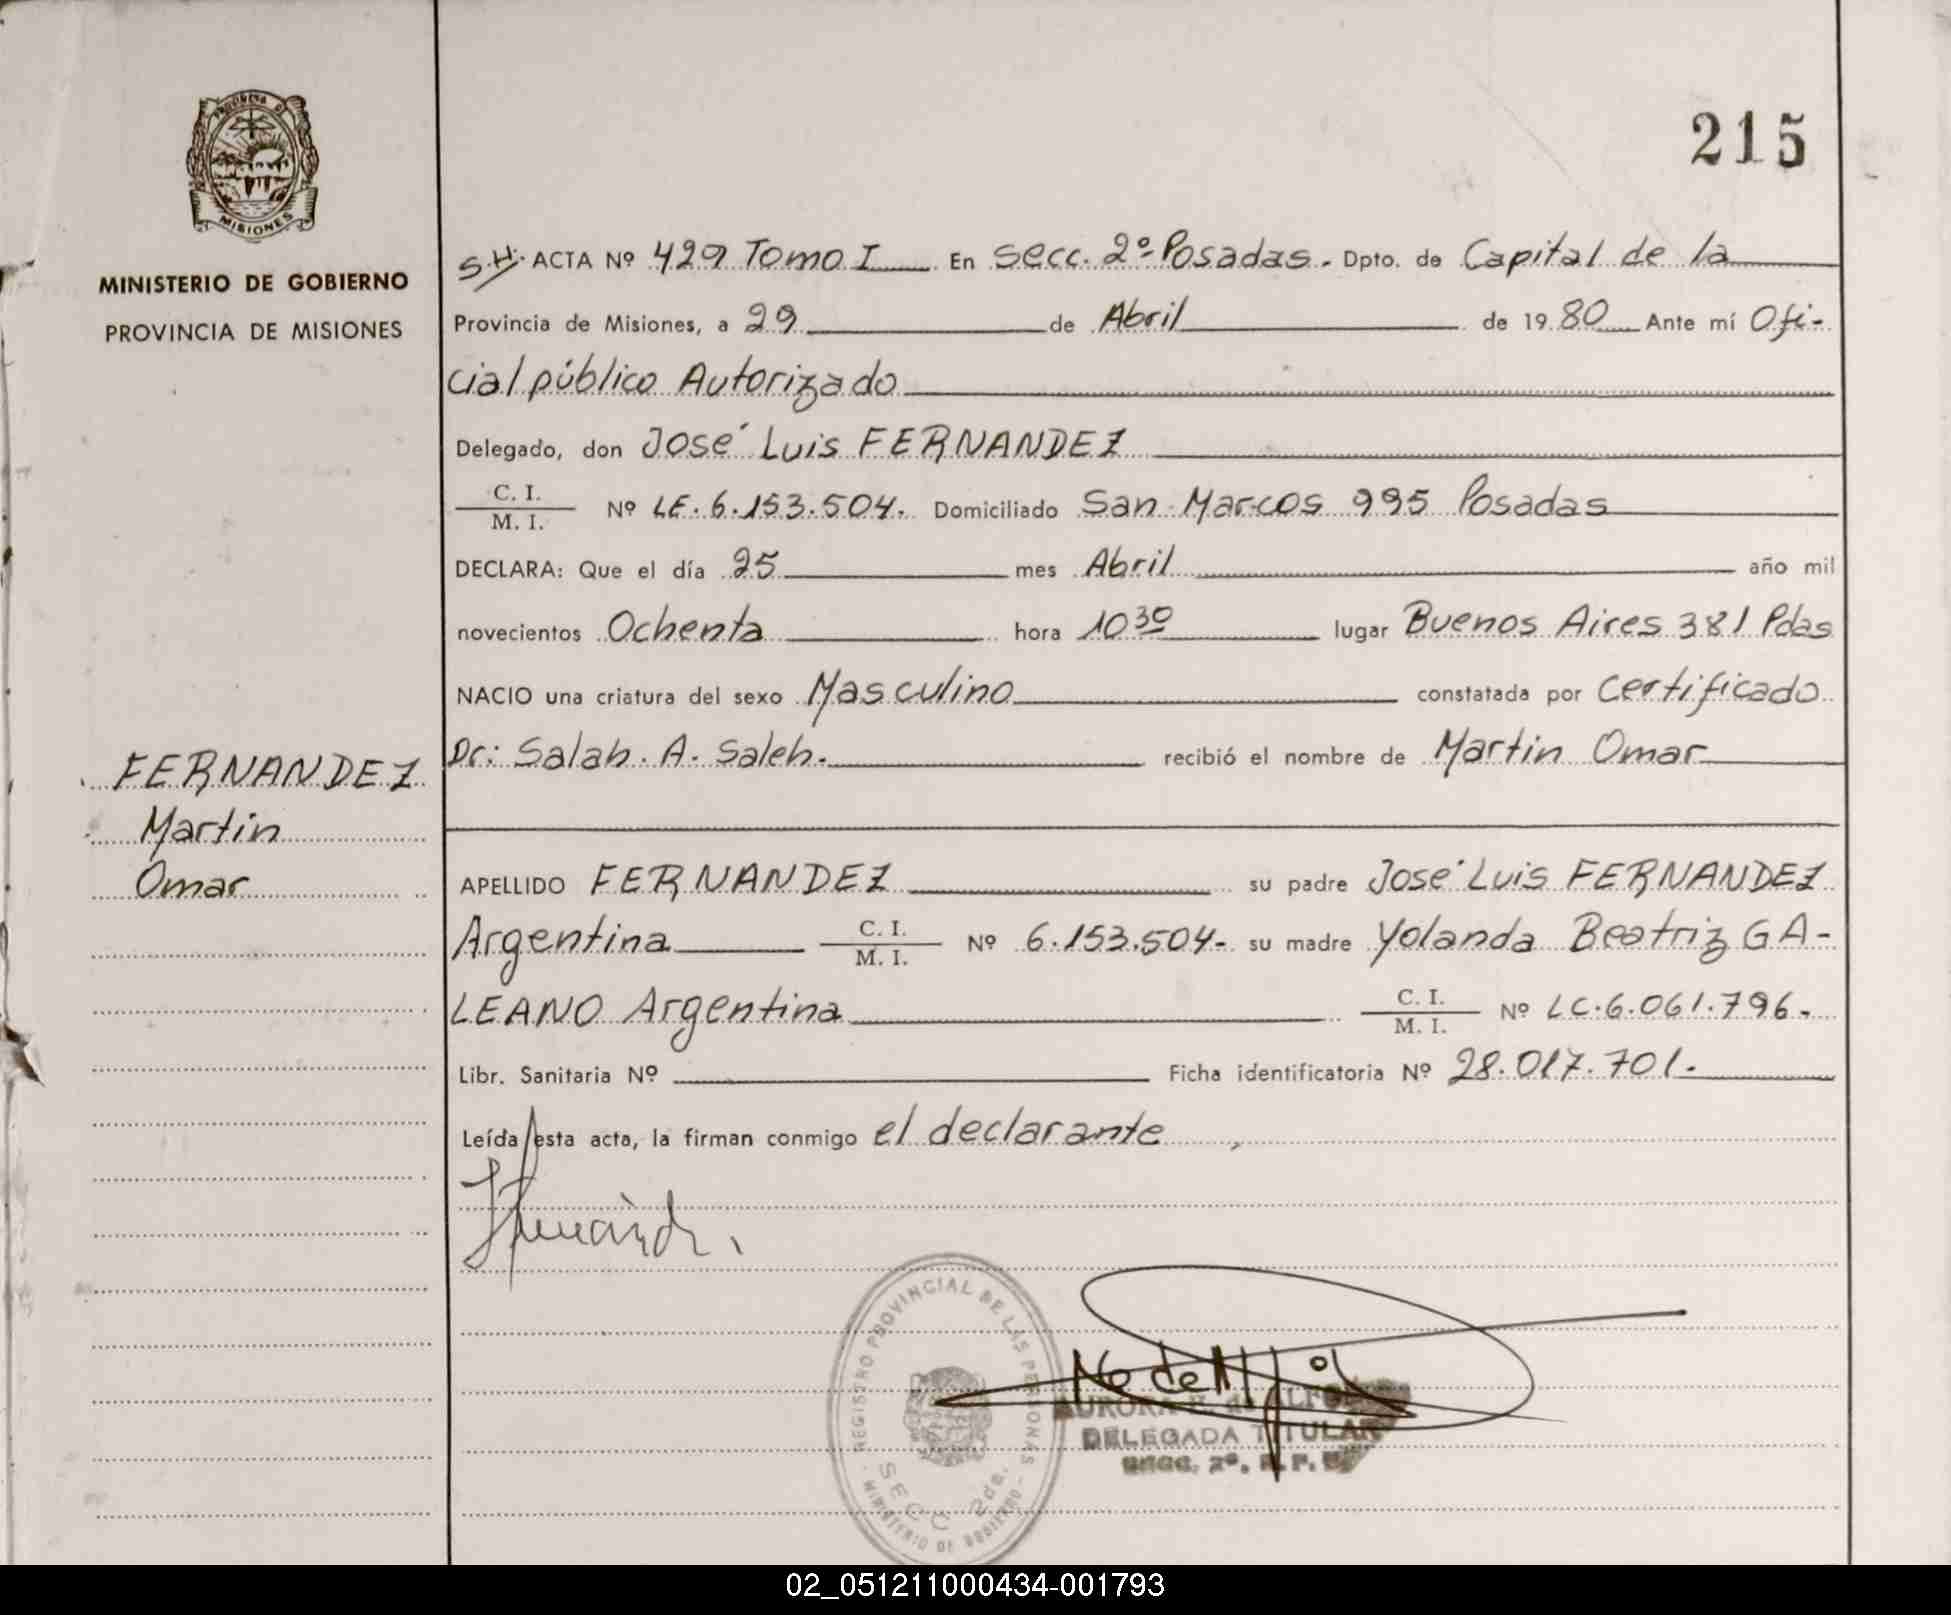 215
PROVINCIA DE
MISIONES
MINISTERIO DE GOBIERNO
PROVINCIA DE MISIONES
FERNANDEZ
Martin
Omar
S.H. ACTA Nº 429 Tomo I En Secc. 2º Posadas. Dpto. de Capital de la
Provincia de Misiones, a 29 de Abril de 1980 Ante mí Ofi-
cial público Autorizado
Delegado, don José Luis FERNANDEZ
C. I.
M. I. Nº LE. 6.153.504. Domiciliado San Marcos 995 Posadas
DECLARA: Que el día 25 mes Abril año mil
novecientos Ochenta hora 10 30 lugar Buenos Aires 381 Pdas
NACIO una criatura del sexo Masculino constatada por Certificado
Dr: Salah. A. Saleh. recibió el nombre de Martin Omar
APELLIDO FERNANDEZ su padre José Luis FERNANDEZ
Argentina C. I.
M. I. Nº 6.153.504- su madre Yolanda Beatriz GA-
LEANO Argentina C. I.
M. I. Nº LC.6.061.796.
Libr. Sanitaria Nº Ficha identificatoria Nº 28.017.701.
Leída esta acta, la firman conmigo el declarante
REGISTRO PROVINCIAL DE LAS PERSONAS
SECC 2da.
MINISTERIO DE GOBIERNO
AURORA de
DELEGADA TITULAR
02_051211000434-001793